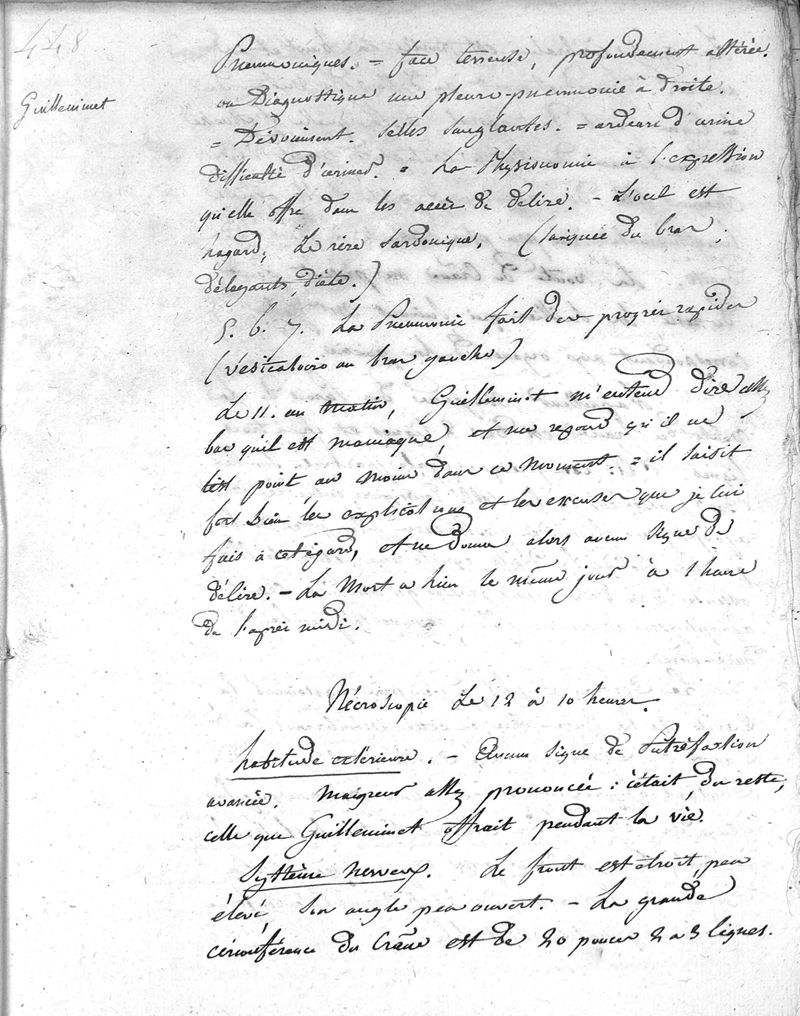 448
Guilleminet
Pneumoniques. = face terreuse, profondement altérée.
on Diagnostique une pleuro-pneumonie à droite.
= Dévoiement. Selles Sanglantes. = ardeurs d'urine
difficulté d'uriner. = La Physionomie à l'expression
qu'elle offre dans les accès de délire. - L'oeil est
hagard, Le rire Sardonique. (saignée du bras,
délayants, diète.)
5. 6. 7. La Pneumonie fait des progrès rapides
(vésicatoire au bras gauche)
Le 11. au matin, Guilleminet m'entend dire assez
bas qu'il est maniaque, et me repond qu'il ne
l'est point au moins dans ce moment. = il saisit
fort bien les explications et les excuses que je lui
fais à cet égard, et ne donne alors aucun signe de
délire. - La Mort a lieu le même jour à 1 heure
de l'après midi.
Nécroscopie Le 12 à 10 heures.
habitude extérieure. - Aucun signe de Putréfaction
avancée. Maigreur assez prononcée : c'était, du reste,
celle que Guilleminet offrait pendant la vie.
Système nerveux. Le front est étroit, peu
élevé, Son angle peu ouvert. - La grande
circonférence du Crâne est de 20 pouces 2 a 3 lignes.